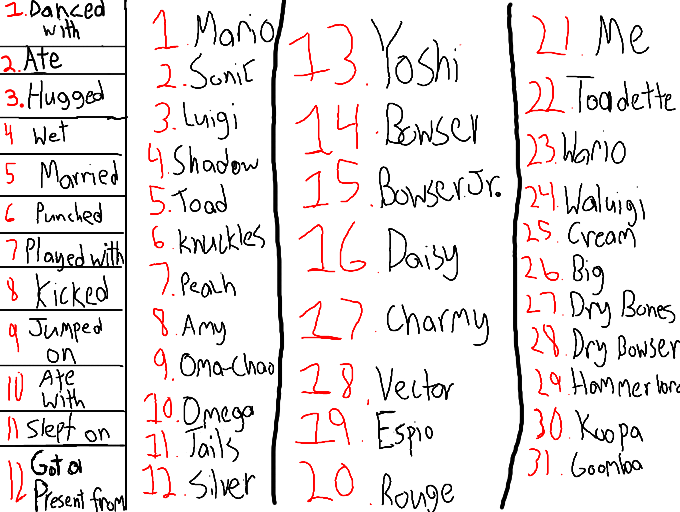 1. Danced
with
2. Ate
3. Hugged
4 Wet
5 Married
6 Punched
7 Played with
8 Kicked
9 Jumped
on
10 Ate
with
11 Slept on
12 Got a
Present from
1. Mario
2. Sonic
3. Luigi
4. Shadow
5. Toad
6. Knuckles
7. Peach
8. Amy
9. Oma-Chao
10. Omega
11. Tails
12. Silver
13. Yoshi
14. Bowser
15. Bowser Jr.
16. Daisy
17. Charmy
18. Vector
19. Espio
20. Rouge
21. Me
22. Toadette
23. Wario
24. Waluigi
25. Cream
26. Big
27. Dry Bones
28. Dry Bowser
29. Hammer bro
30. Koopa
31. Goomba